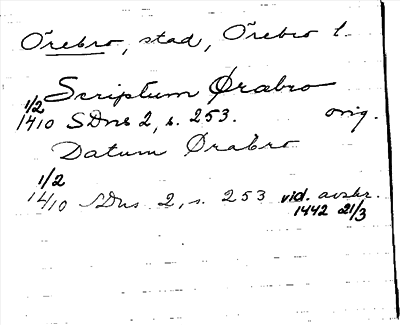 Örebro, stad, Örebro l.
Scriptum Ørabro
1/2
1410 SDns 2, s. 253. orig.
Datum Ørabro
1/2
1410 SDns 2, s. 253 vid. avskr.
1442 21/3